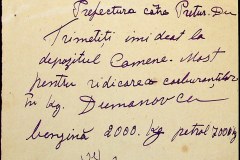 Prefectura catre Pretur. Du
Trimeteți imideat la
depozitul Camene. Most
pentru ridicarea carburanților
in kg. Dumanovca
benzină 2000. kg petrol 7000 kg